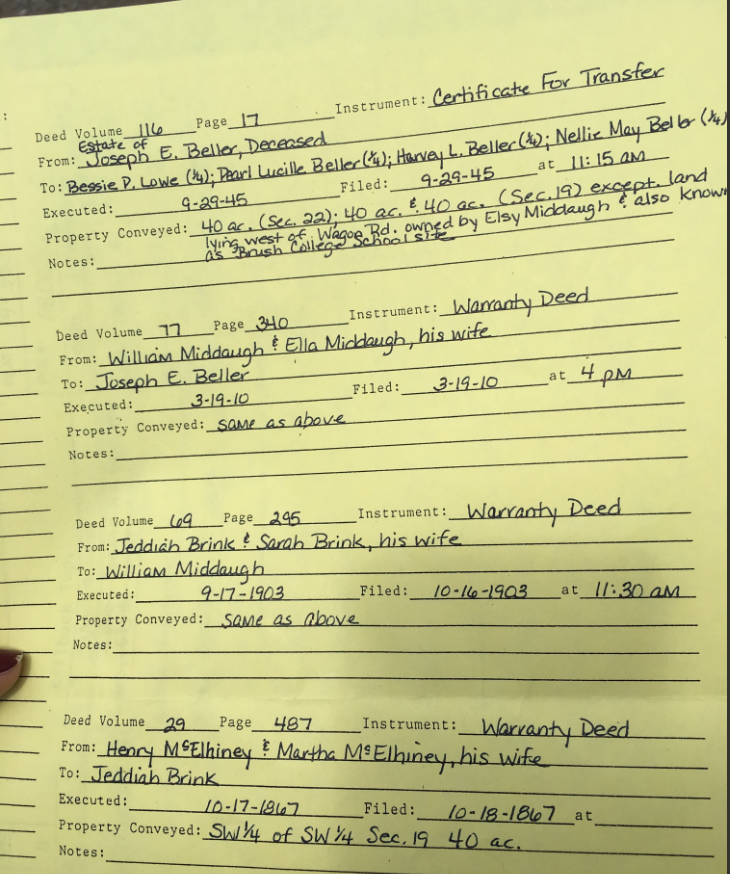 Deed Volume 116 Page 17 Instrument: Certificate For Transfer
Estate of
From: Joseph E. Beller, Deceased
To: Bessie P. Lowe (¼); Pearl Lucille Beller (¼); Harvey L. Beller (¼); Nellie May Beller (¼)
Executed: 9-29-45 Filed: 9-29-45 at 11:15 am
Property Conveyed: 40 ac. (Sec. 22); 40 ac. & 40 ac. (Sec. 19) except land
lying west of Wagon Rd. owned by Elsy Middaugh & also known
Notes: as Brush College School site
Deed Volume 77 Page 340 Instrument: Warranty Deed
From: William Middaugh & Ella Middaugh, his wife
To: Joseph E. Beller
Executed: 3-19-10 Filed: 3-19-10 at 4 pm
Property Conveyed: same as above
Notes:
Deed Volume 69 Page 295 Instrument: Warranty Deed
From: Jeddiah Brink & Sarah Brink, his wife
To: William Middaugh
Executed: 9-17-1903 Filed: 10-16-1903 at 11:30 am
Property Conveyed: same as above
Notes:
Deed Volume 29 Page 487 Instrument: Warranty Deed
From: Henry McElhiney & Martha McElhiney, his wife
To: Jeddiah Brink
Executed: 10-17-1867 Filed: 10-18-1867 at
Property Conveyed: SW ¼ of SW ¼ Sec. 19 40 ac.
Notes: